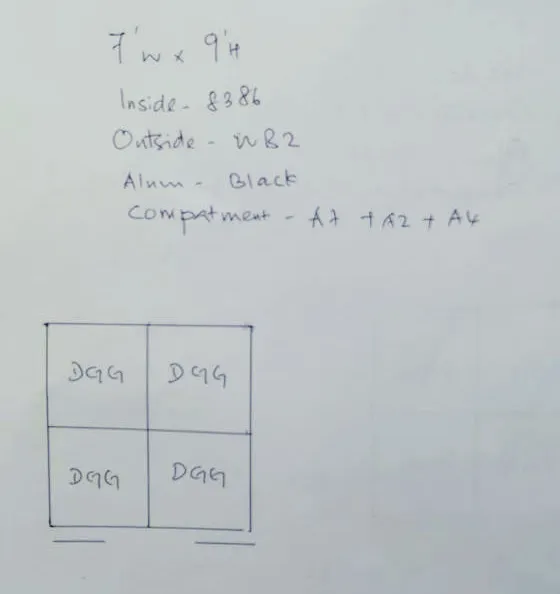 7'W x 9'H
Inside - 8386
Outside - WB2
Alum - Black
Compatment - A7 + A2 + A4
DGG DGG
DGG DGG